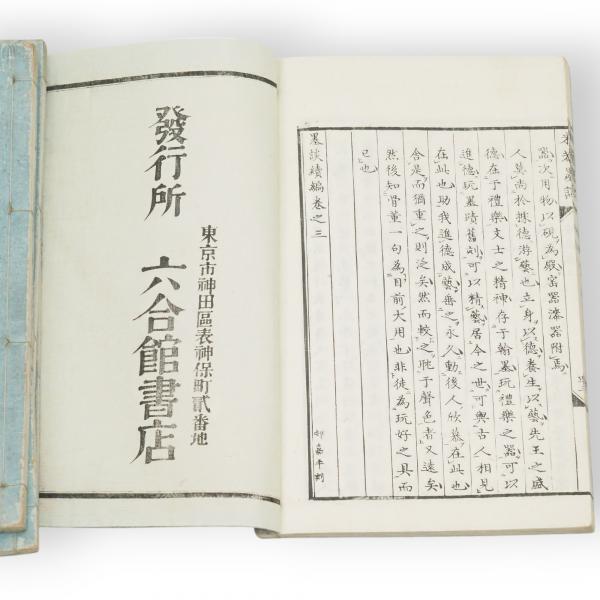 米菴墨談
器次用物以硯為殿窑器漆器附焉
人莫尚於據德游藝也立身以德養生以藝先王之盛
德在于禮樂文士之精神存于翰墨玩禮樂之器可以
進德玩墨跡舊刻可以精藝居今之世可與古人相見
在此也助我進德成藝垂之永久動後人欣慕在此也
舍是而猶重之則泛矣然而較之躭于聲色者又遠矣
然後知骨董一句為目前大用也非徒為玩好之具而
已也
墨談續編卷之三
邨嘉平刻
東京市神田區表神保町貳番地
發行所 六合館書店